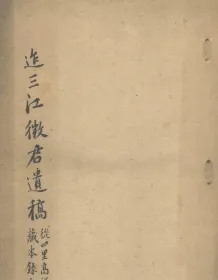 迮三江徵君遺稿
從四里高
藏本錄